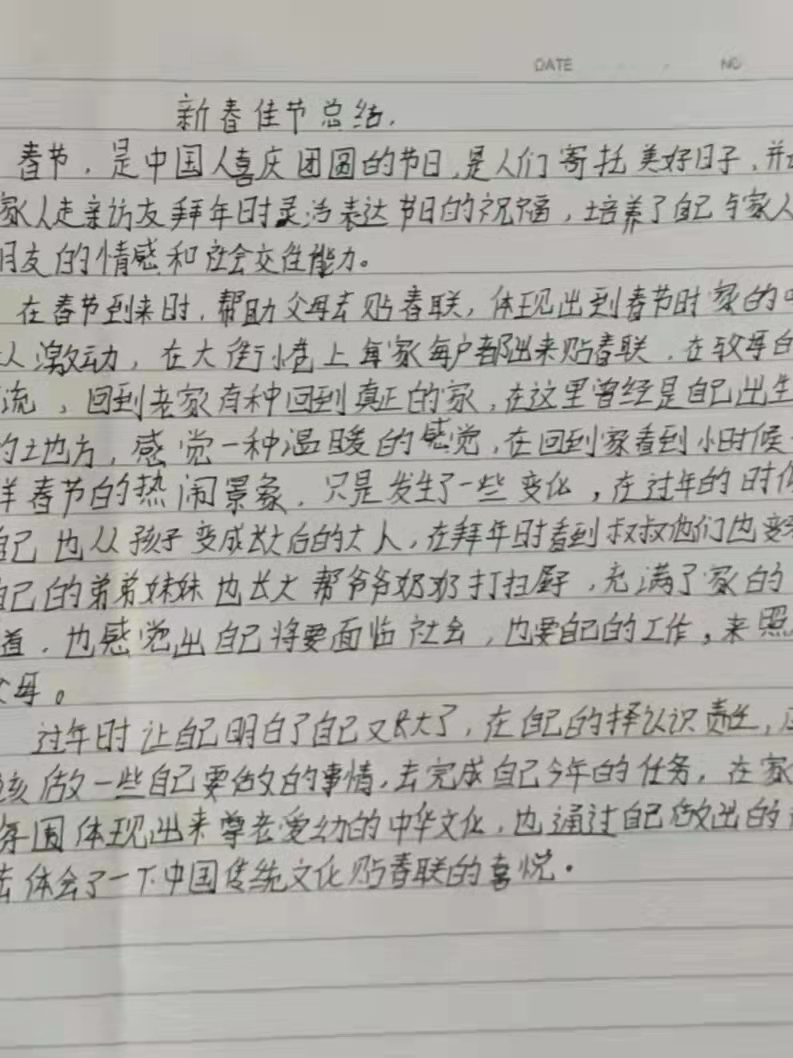 DATE NO
新春佳节总结.
春节，是中国人喜庆团圆的节日，是人们寄托美好日子，并
家人走亲访友拜年时灵活表达节日的祝福，培养了自己与家人
朋友的情感和社会交往能力。
在春节到来时，帮助父母去贴春联，体现出到春节时家的
人激动，在大街小巷上每家每户都出来贴春联，在
流，回到老家有种回到真正的家，在这里曾经是自己出生
的土地方，感觉一种温暖的感觉，在回到家看到小时候
样春节的热闹景象，只是发生了一些变化，在过年的时候
自己也从孩子变成长大后的大人，在拜年时看到叔叔他们也变
自己的弟弟妹妹也长大帮爷爷奶奶打扫，充满了家的
道，也感觉出自己将要面临社会，也要自己的工作，来照
父母。
过年时让自己明白了自己又长大了，在自己的择认识责任，应
该做一些自己要做的事情，去完成自己今年的任务，在家
氛围体现出来尊老爱幼的中华文化，也通过自己做出的
去体会了一下中国传统文化贴春联的喜悦.